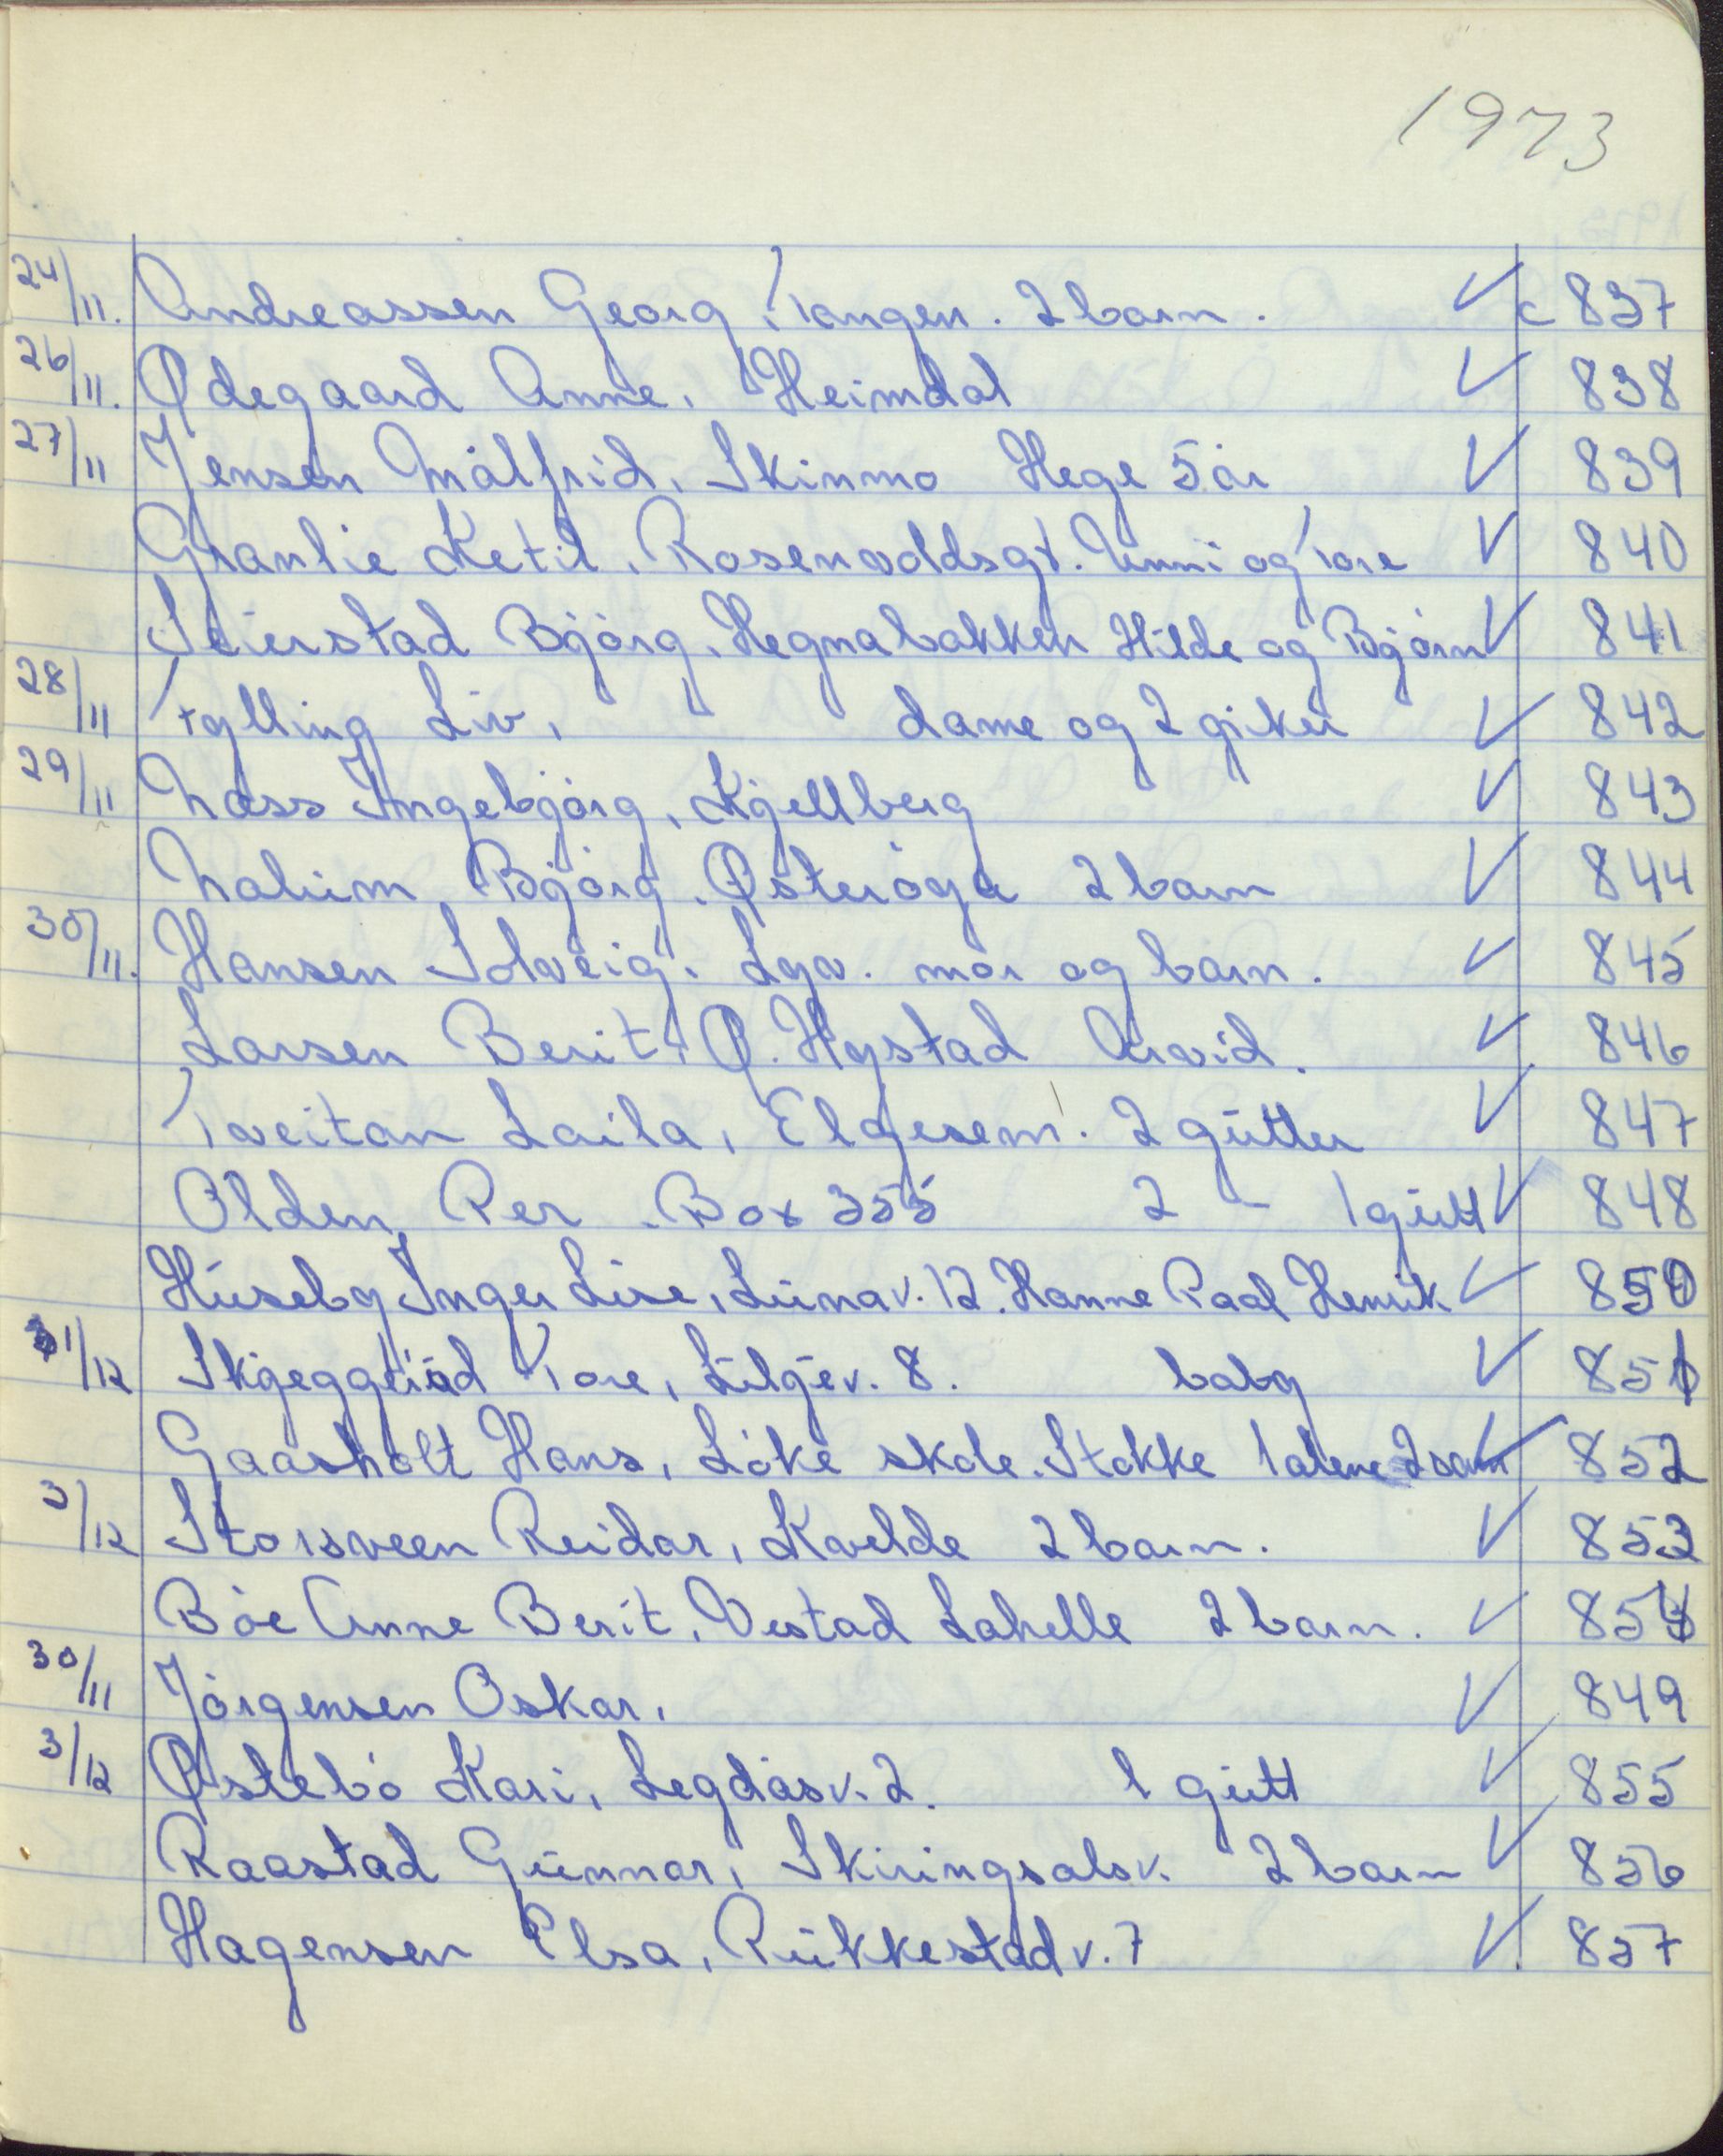 1973
24/11. Andreassen Georg, Tangen. 2 barn. ✓ c 837
26/11. Ødegaard Anne, Heimdal ✓ 838
27/11 Jensen Målfrid, Skinmo Hege 5 år ✓ 839
Granlie Ketil, Rosenvoldsgt. Unni og Tore ✓ 840
Seierstad Bjørg, Hegnabakken Hilde og Bjørn ✓ 841
28/11 Tylling Liv, dame og 2 piker ✓ 842
29/11 Næss Ingebjørg, Kjellberg ✓ 843
Nalum Bjørg, Østerøya 2 barn ✓ 844
30/11. Hansen Solveig, Lyv. mor og barn. ✓ 845
Larsen Berit, Ø. Hystad Arvid. ✓ 846
Tveitan Laila, Elgesem. 2 gutter ✓ 847
Olden Per. Box 355 2 - 1 gutt ✓ 848
Huseby Inger Lise, Lunav. 12. Hanne Paal Henrik ✓ 850
1/12 Skjeggerud Tore, Liljev. 8. baby ✓ 851
Gaasholt Hans, Løke skole. Stokke 1 alene 2 sam ✓ 852
3/12 Storsveen Reidar, Kvelde 2 barn. ✓ 853
Bøe Anne Berit, Vestad Lahelle 2 barn. ✓ 854
30/11 Jørgensen Oskar, ✓ 849
3/12 Østebø Kari, Legdåsv. 2. 1 gutt ✓ 855
Raastad Gunnar, Skiringsalsv. 2 barn ✓ 856
Hagensen Elsa, Rukkestadv. 7 ✓ 857